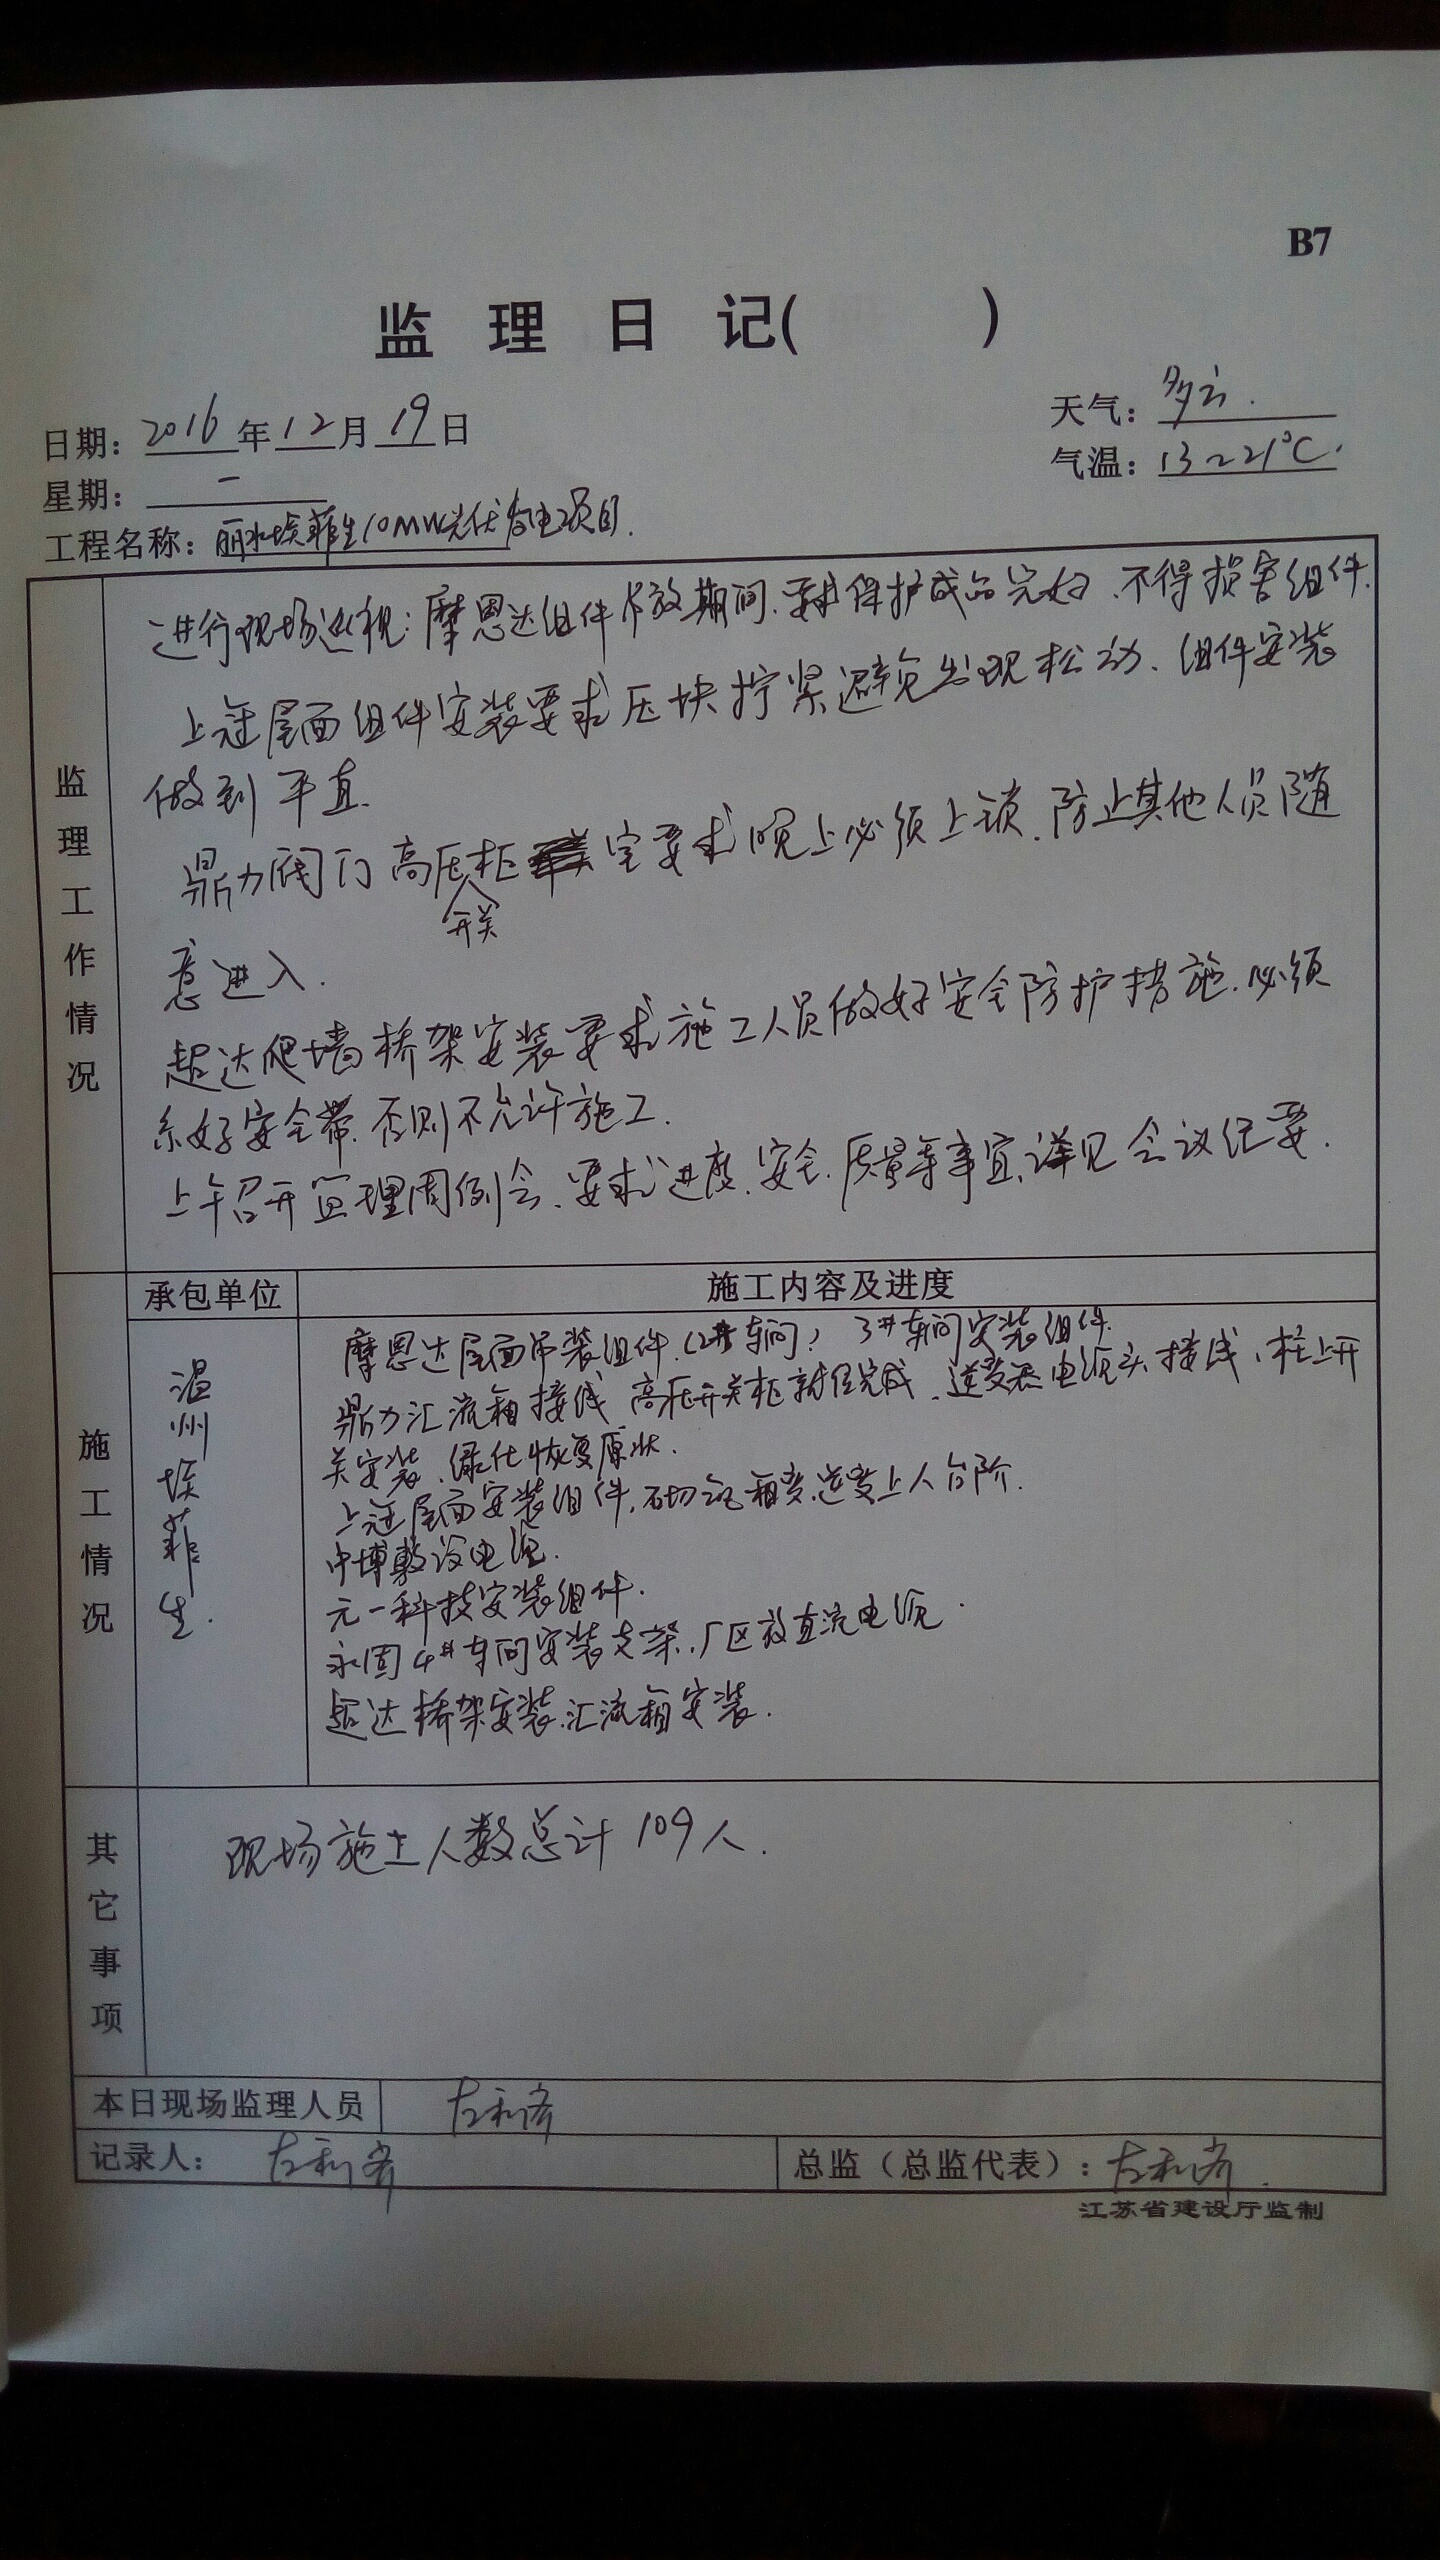 B7
监理日记( )
日期: 2016年12月19日
天气: 多云.
星期: 一
气温: 13~21℃.
工程名称: 丽水埃菲生10MW光伏发电项目.
监理工作情况
进行现场巡视: 摩恩达组件 放期间.要求保护成品完好、不得损害组件.
上冠屋面组件安装要求压块拧紧避免出现松动、组件安装
做到平直.
鼎力阀门高压开关柜室要求晚上必须上锁.防止其他人员随
意进入.
超达爬墙桥架安装要求施工人员做好安全防护措施.必须
系好安全带.否则不允许施工.
上午召开监理周例会、要求进度、安全.质量等事宜、详见会议纪要.
施工情况
承包单位
施工内容及进度
温州埃菲生.
摩恩达屋面吊装组件.(2#车间) 3#车间安装组件.
鼎力汇流箱接线 高压开关柜就位完成、逆变器电缆头接线、柱上开
关安装、绿化恢复原状.
上冠屋面安装组件,砌筑箱变、逆变上人台阶.
中博敷设电缆.
元一科技安装组件.
永固4#车间安装支架、厂区放直流电缆.
超达桥架安装.汇流箱安装.
其它事项
现场施工人数总计109人.
本日现场监理人员 左利
记录人: 左利
总监(总监代表): 左利
江苏省建设厅监制